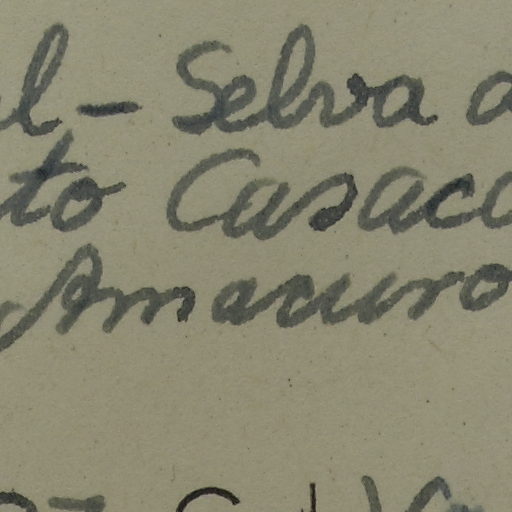 el - Selva a
to Casaco
Amacuro